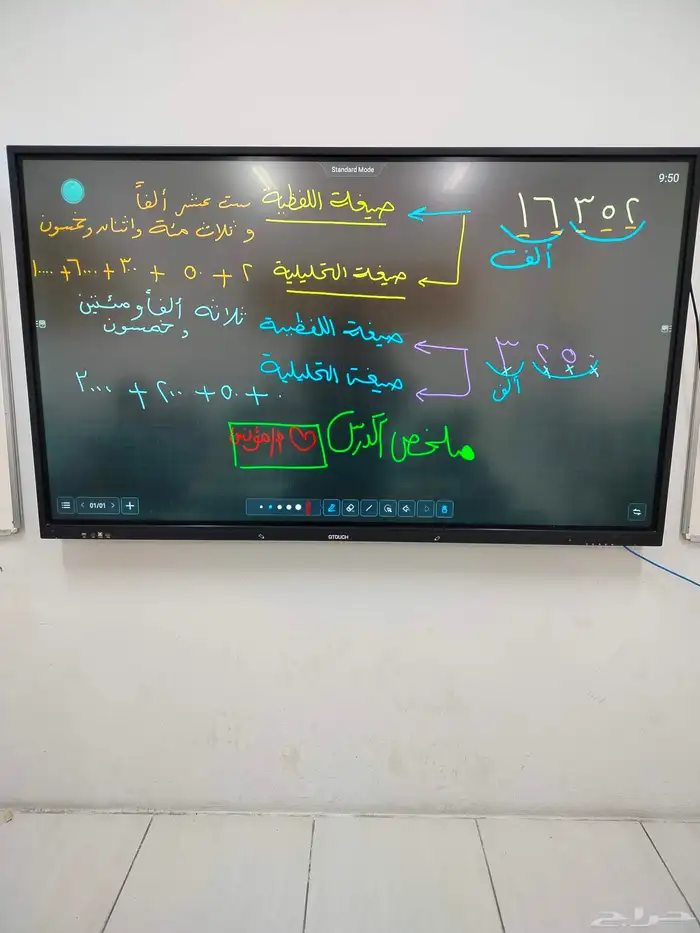 Standard Mode
9:50
١٦٣٥٢
ألف
صيغة اللفظية ست عشر ألفاً
و ثلاث مئة واثنان وخمسون
صيغة التحليلية ٢ + ٥٠ + ٣٠٠ + ٦٠٠٠ + ١٠٠٠٠
٣٢٥٠
ألف
صيغة اللفظية ثلاثة ألفاً ومئتين
وخمسون
صيغة التحليلية ٣٠٠٠ + ٢٠٠ + ٥٠ + ٠
ملخص الدرس
01/01
QTOUCH
حراج